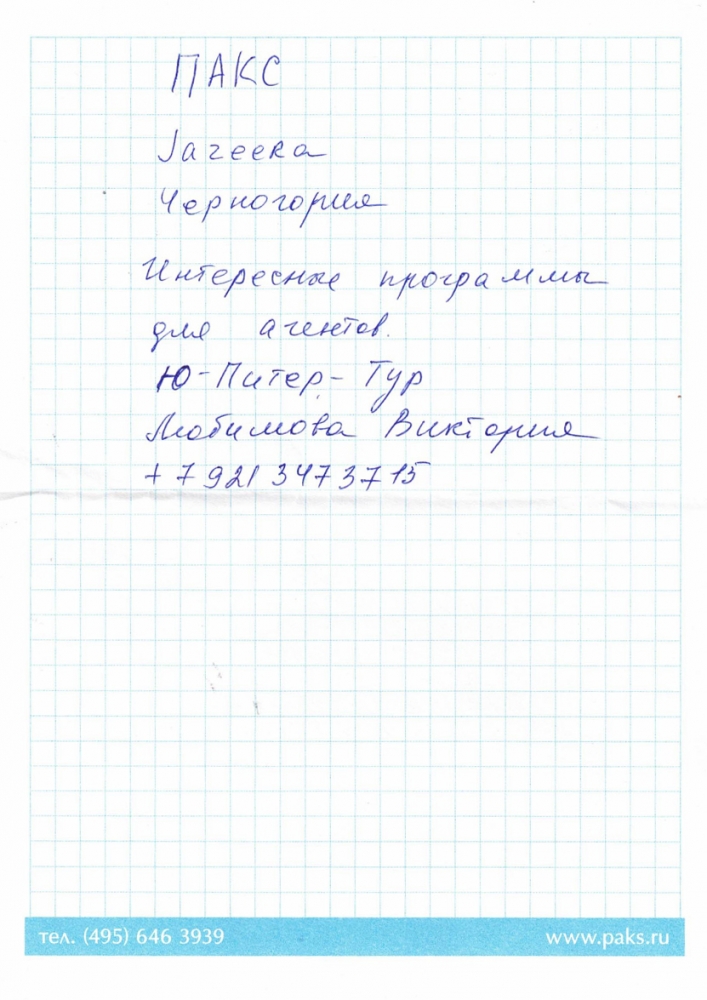 ПАКС
Черногория
Интересные программы
для агентов.
Ю-Питер-Тур
Любимова Виктория
+7 921 347 37 15
тел. (495) 646 3939
www.paks.ru